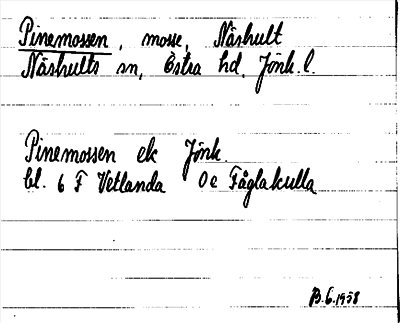 Pinemossen, mosse, Näshult
Näshults sn, Östra hd, Jönk. l.
Pinemossen ek Jönk.
bl. 6 F Vetlanda 0e Fåglakulla
B.G. 1958